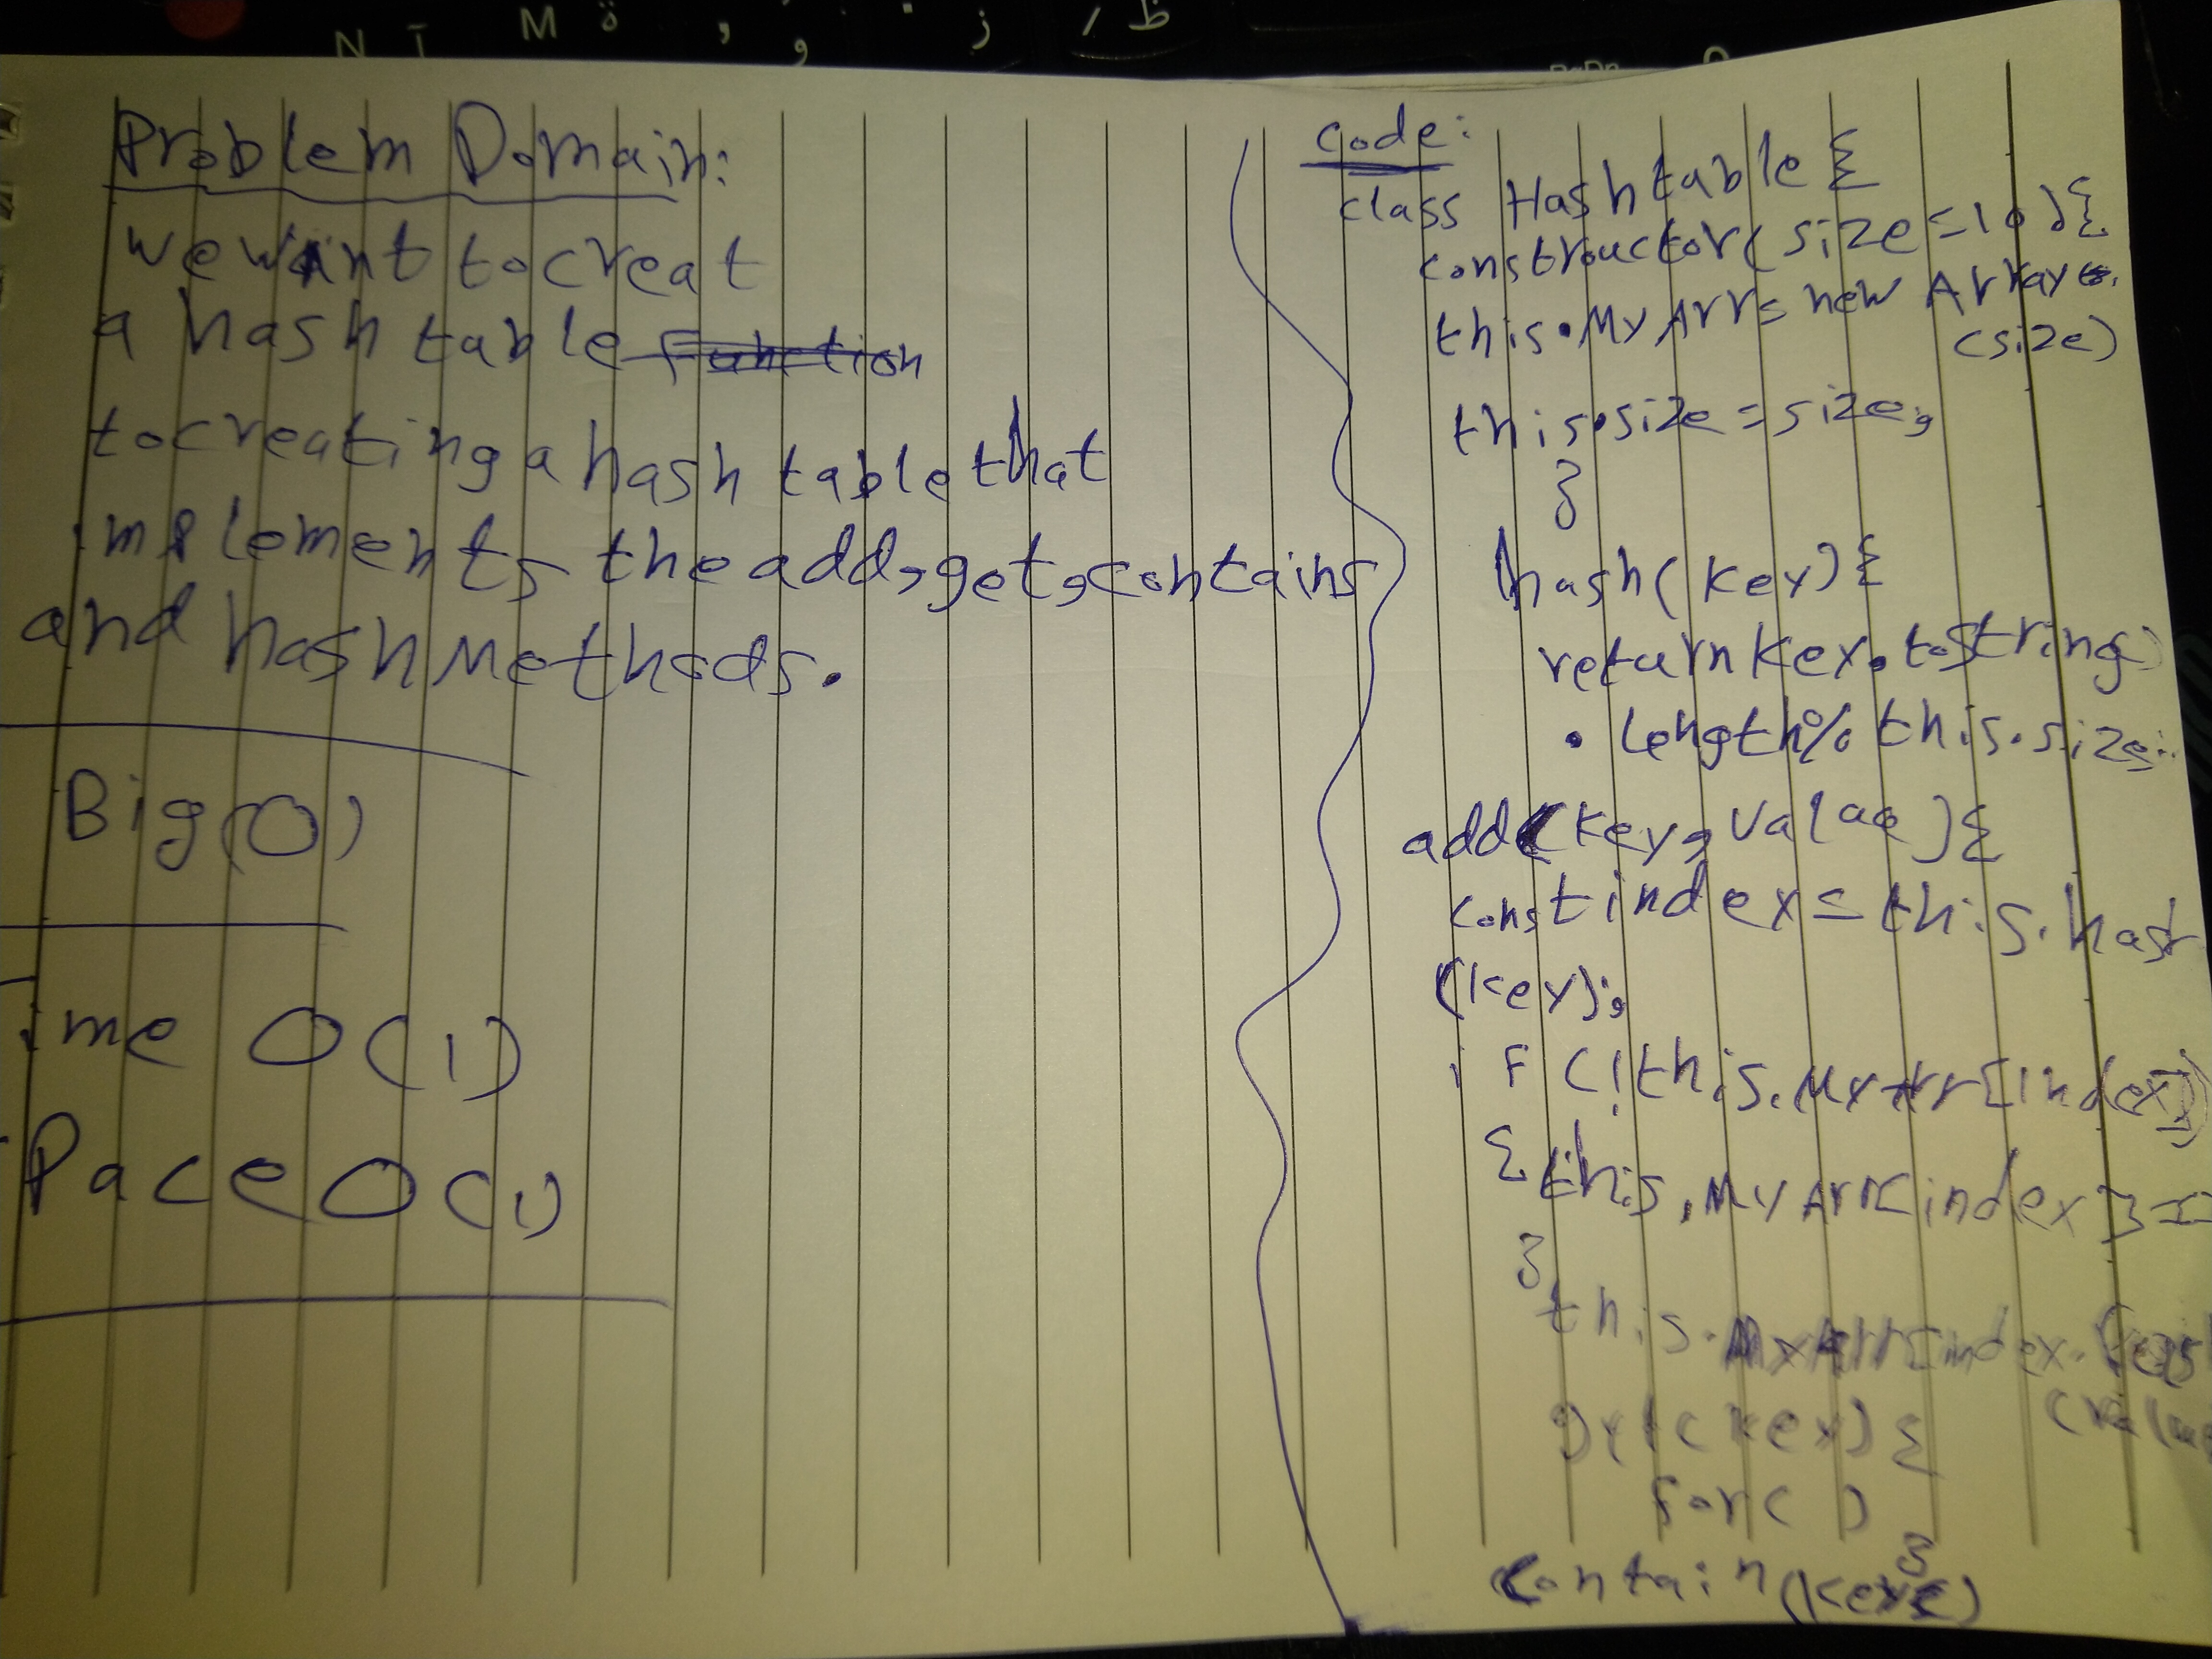 N آ M ة و ز ظ
Problem Domain:
we want to creat
a hash table function
to creating a hash table that
implements the add, get, contains
and hash Methods.
Big(O)
ime O(1)
Pace O(1)
code:
class Hashtable {
constructor(size=10){
this.MyArr= new Array
(size)
this.size=size;
}
hash(key){
return key.toString
.length% this.size;
add(key, value){
const index= this.hash
(key);
if (!this.MyArr[index])
{ this.MyArr[index] =
}
this.MyArr[index.
(Valu
(key){
for( )
}
contain(key